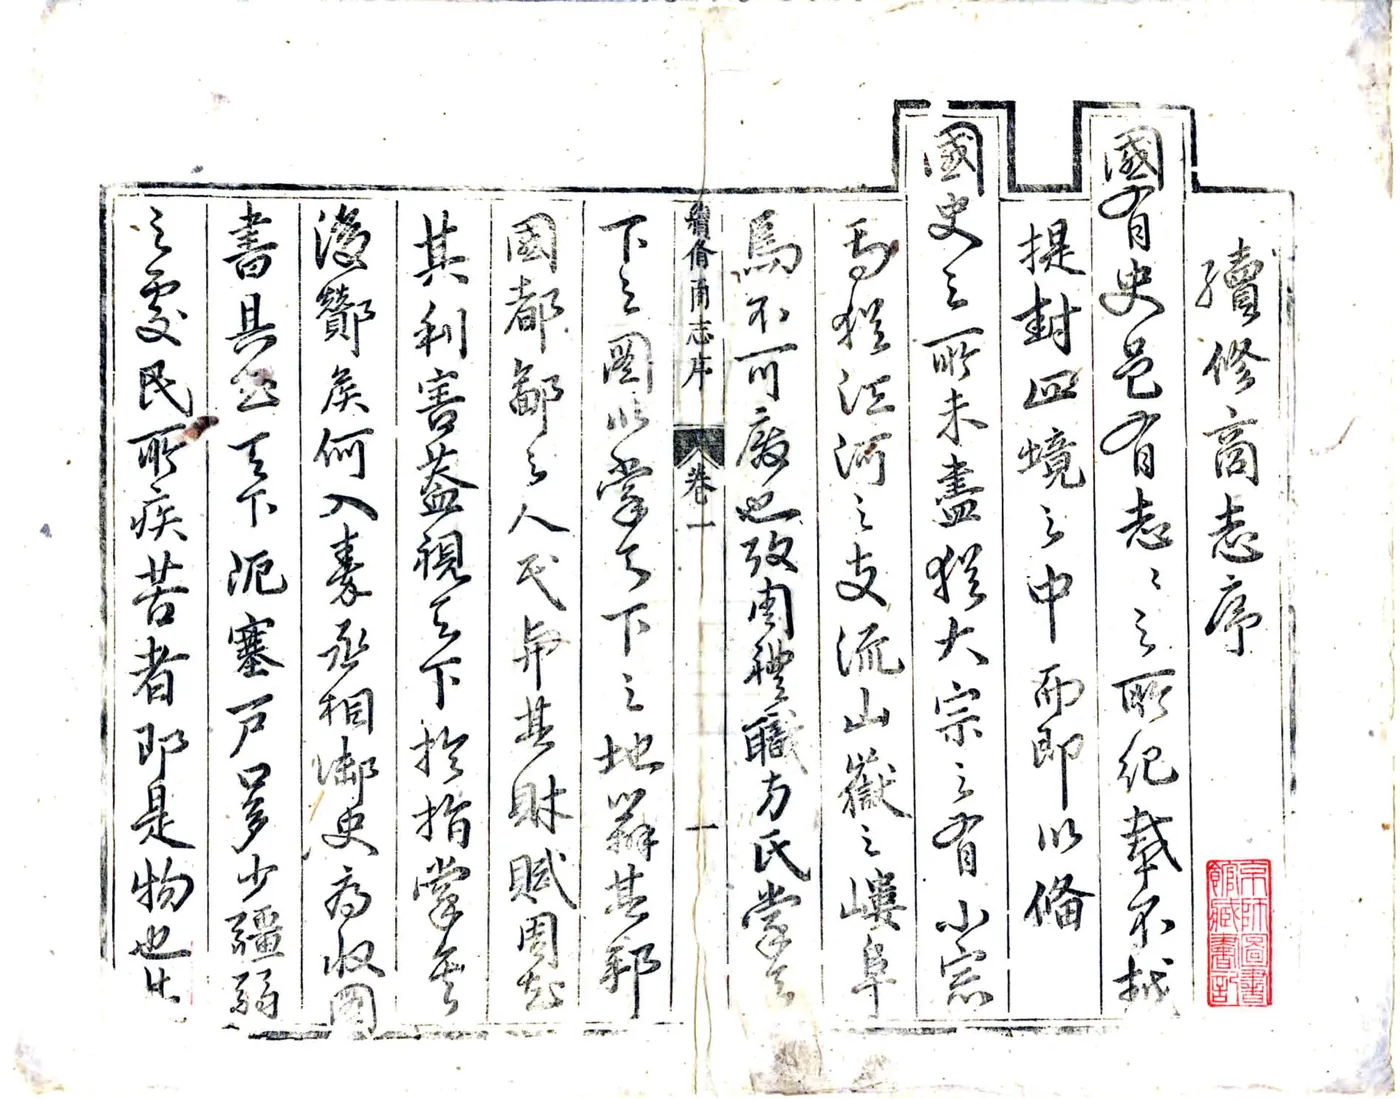 續修商志序
國有史邑有志〻之所紀載不越
提封四境之中而即以備
國史之所未盡猶大宗之有小宗
焉猶江河之支流山嶽之嶁阜
焉不可廢也攷周禮職方氏掌天
續脩商志序 卷一 一
下之圖以掌天下之地辯其邦
國都鄙之人民與其財賦周知
其利害葢視天下於指掌矣
漢酇侯何入秦丞相御史府收圖
書具知天下阨塞戶口多少彊弱
之處民所疾苦者即是物也
京師圖書
館藏書記